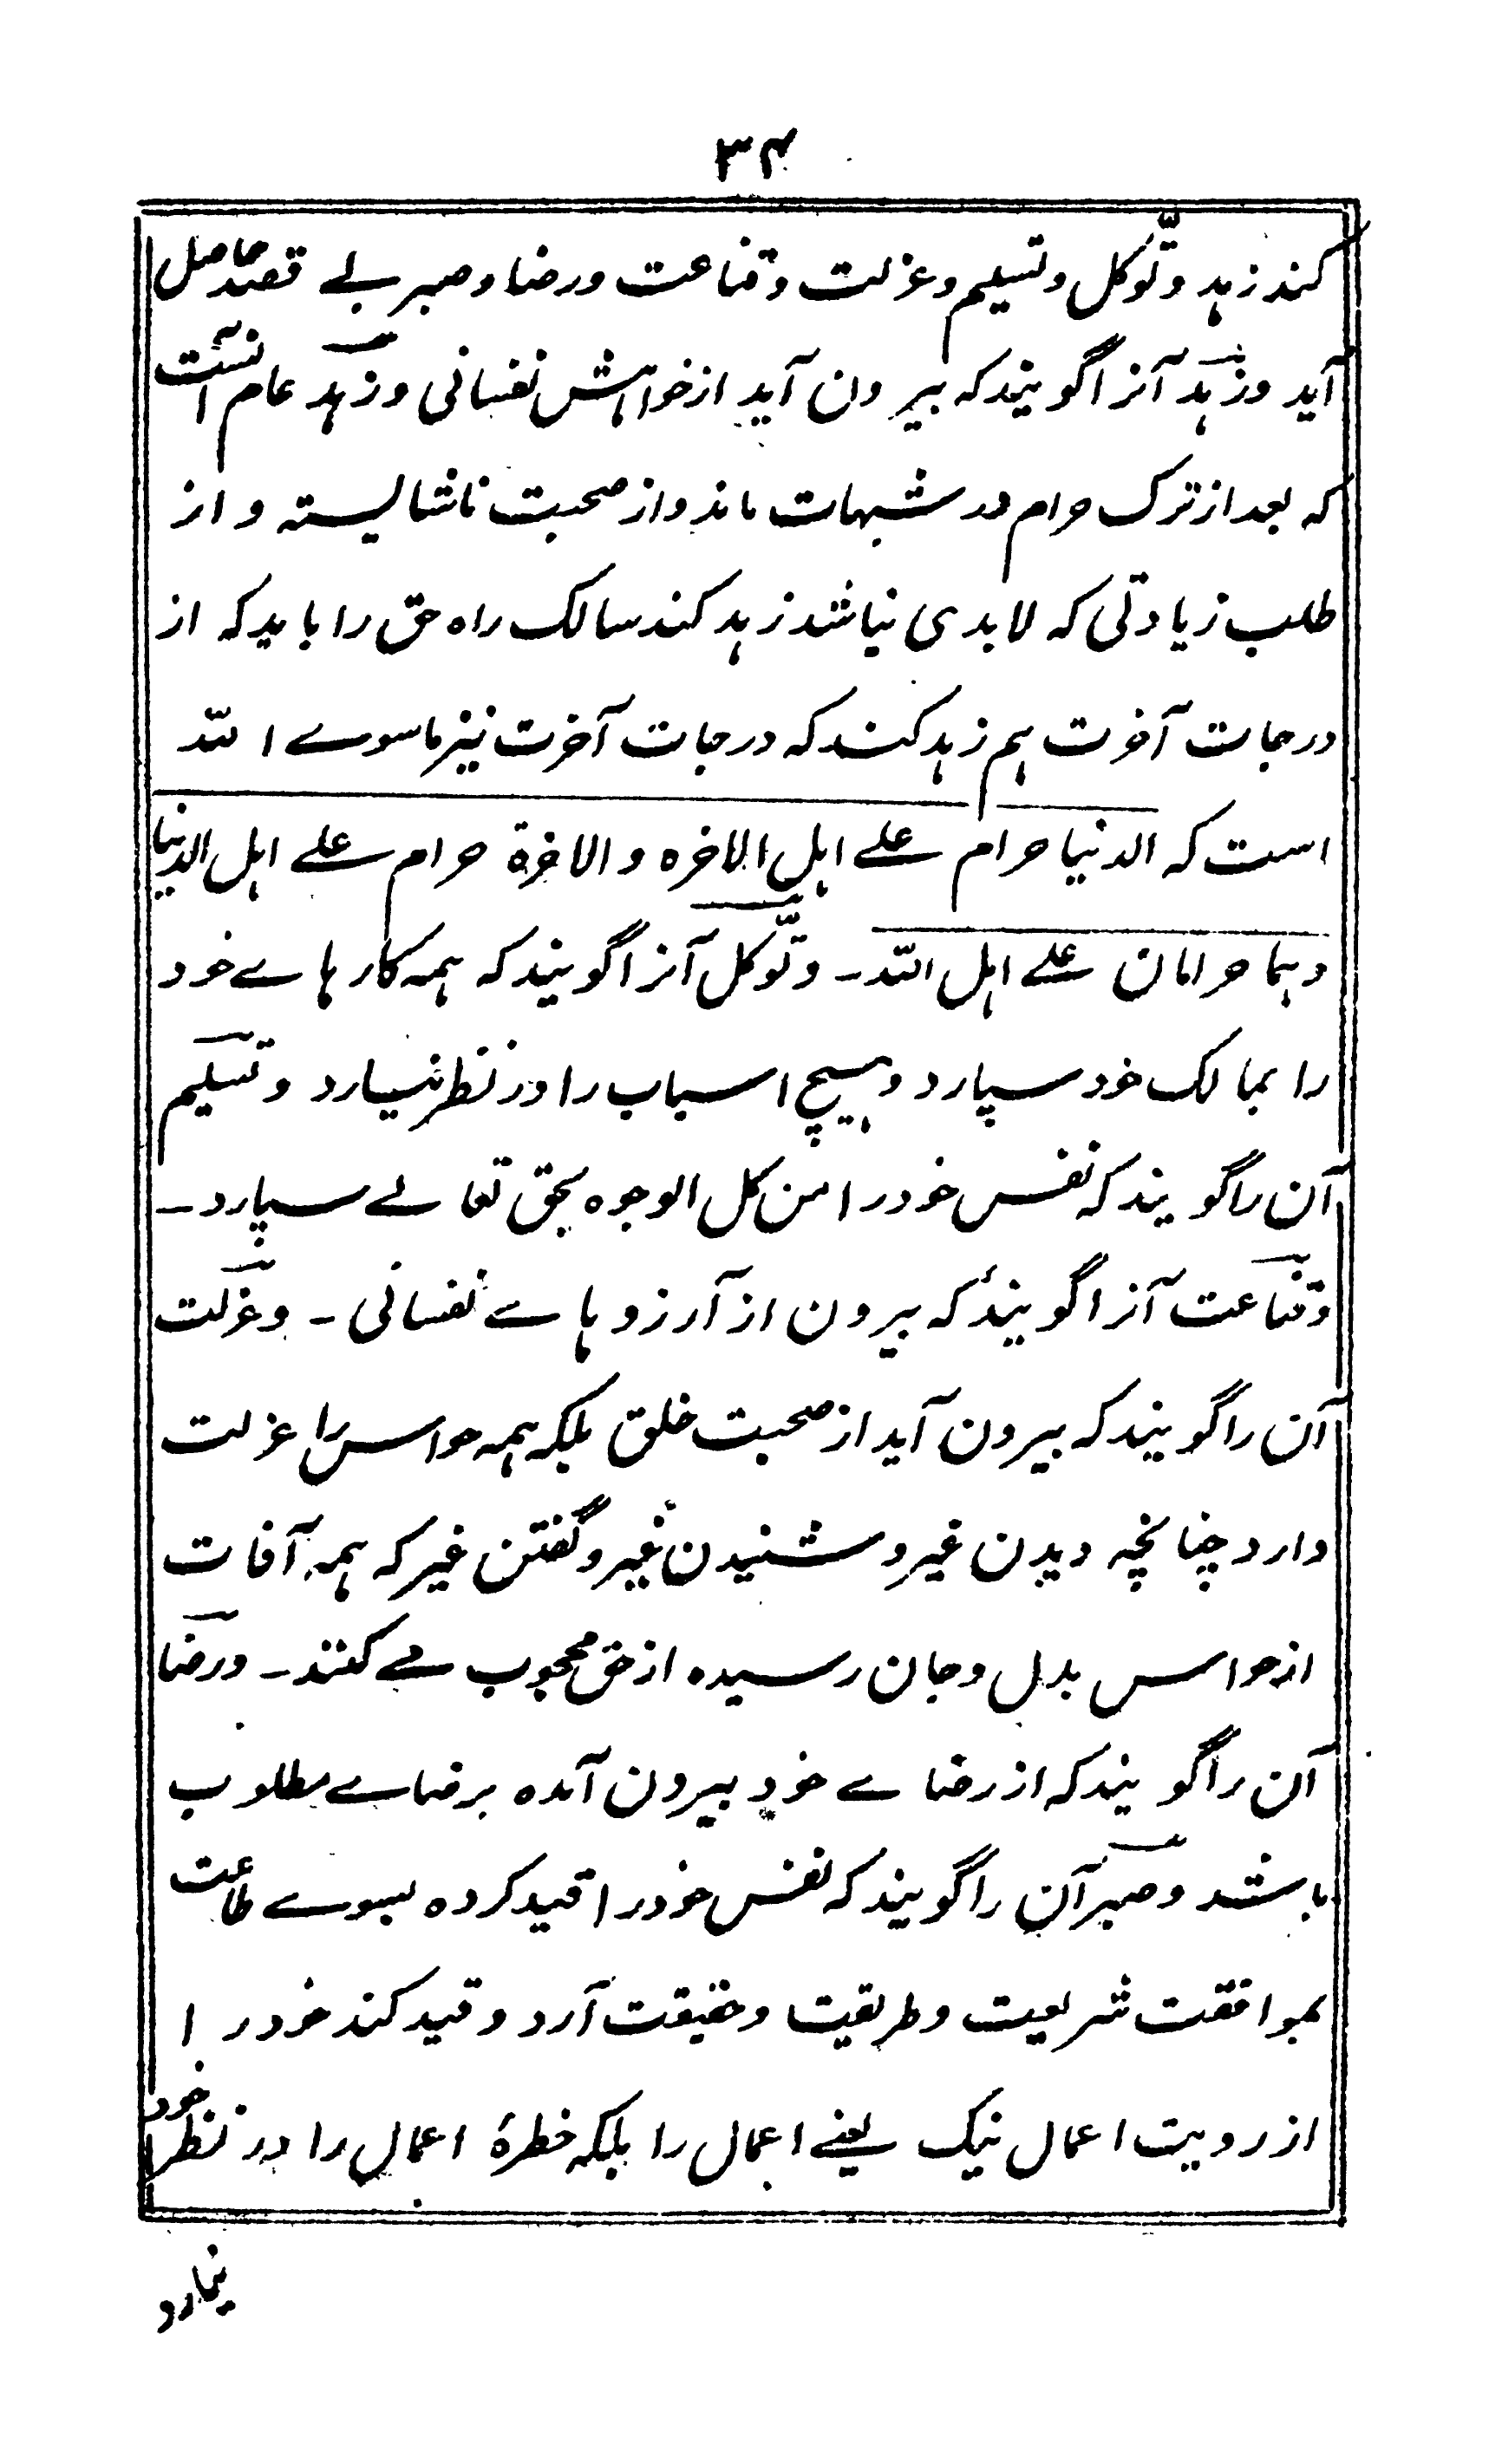 ۳۴
کند زہد و توّکل و تسلیم و عزلت و قناعت و رضا و صبر بے قصد حاصل
آید و زہد آنرا گویند کہ بیرون آید از خواہش نفسانی و زہد عام آنست
کہ بعد از ترک حرام در شبہات ماند و از صحبت ناشایستہ و از
طلب زیادتی کہ لابدی نباشد زہد کند سالک راہ حق را باید کہ از
درجات آخرت ہم زہد کند کہ درجات آخرت نیز ماسوے اللہ
است کہ الدنیا حرام علے اہل الاخرہ و الاخرۃ حرام علے اہل الدنیا
وہما حرامان علے اہل اللہ ۔ و توّکل آنرا گویند کہ ہمہ کارہاے خود
را بمالک خود سپارد و ہیچ اسباب را در نظر نیارد و تسلیم
آن را گویند کہ نفس خود را من کل الوجوہ بحق تعالے سپارد ۔
وقناعت آنرا گویند کہ بیرون از آرزوہاے نفسانی ۔ وعزلت
آن را گویند کہ بیرون آید از صحبت خلق بلکہ ہمہ حواس را عزلت
دارد چنانچہ دیدن غیر و شنیدن غیر و گفتن غیر کہ ہمہ آفات
از حواس بدل و جان رسیدہ از حق محجوب مے کنند ۔ ورضا
آن را گویند کہ از رضاے خود بیرون آمدہ برضاے مطلوب
باشد وصبر آن را گویند کہ نفس خود را قید کردہ بسوے طاعت
بموافقت شریعت وطریقت وحقیقت آرد و قید کند خود را
از رویت اعمال نیک یعنے اعمال را بلکہ خطرۂ اعمال را در نظر خود
نیارد